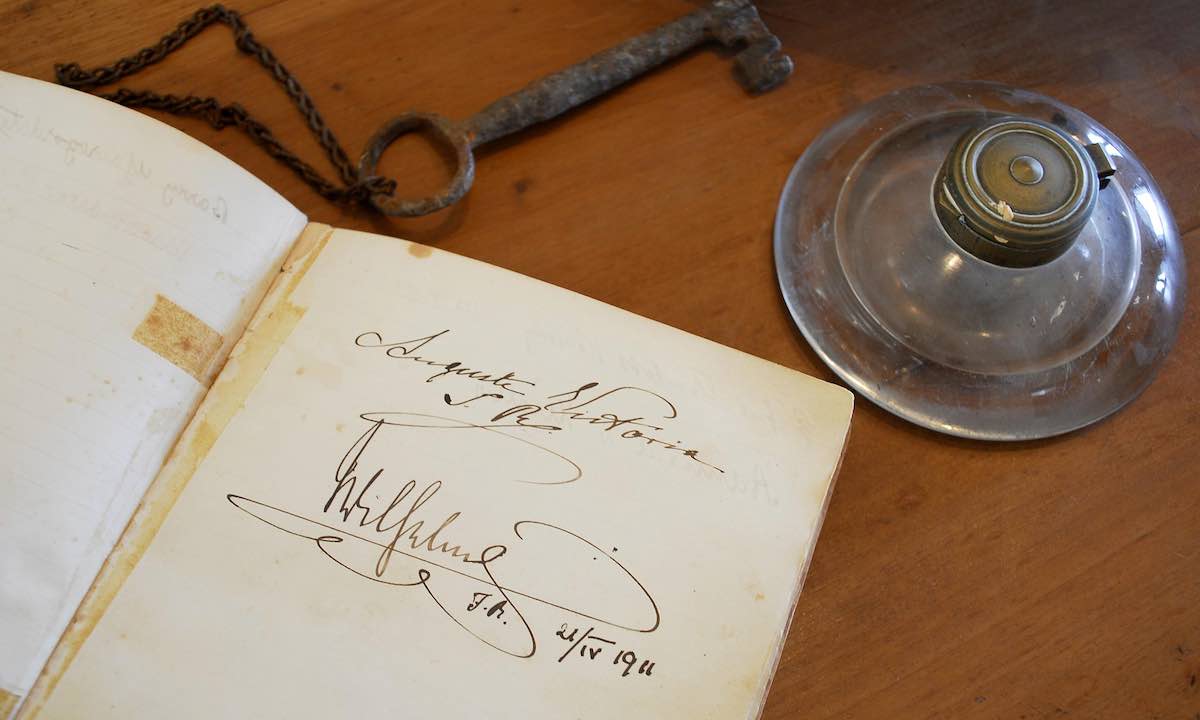 Auguste Victoria
I. R.
Wilhelm
I. R.
21/IV 1911